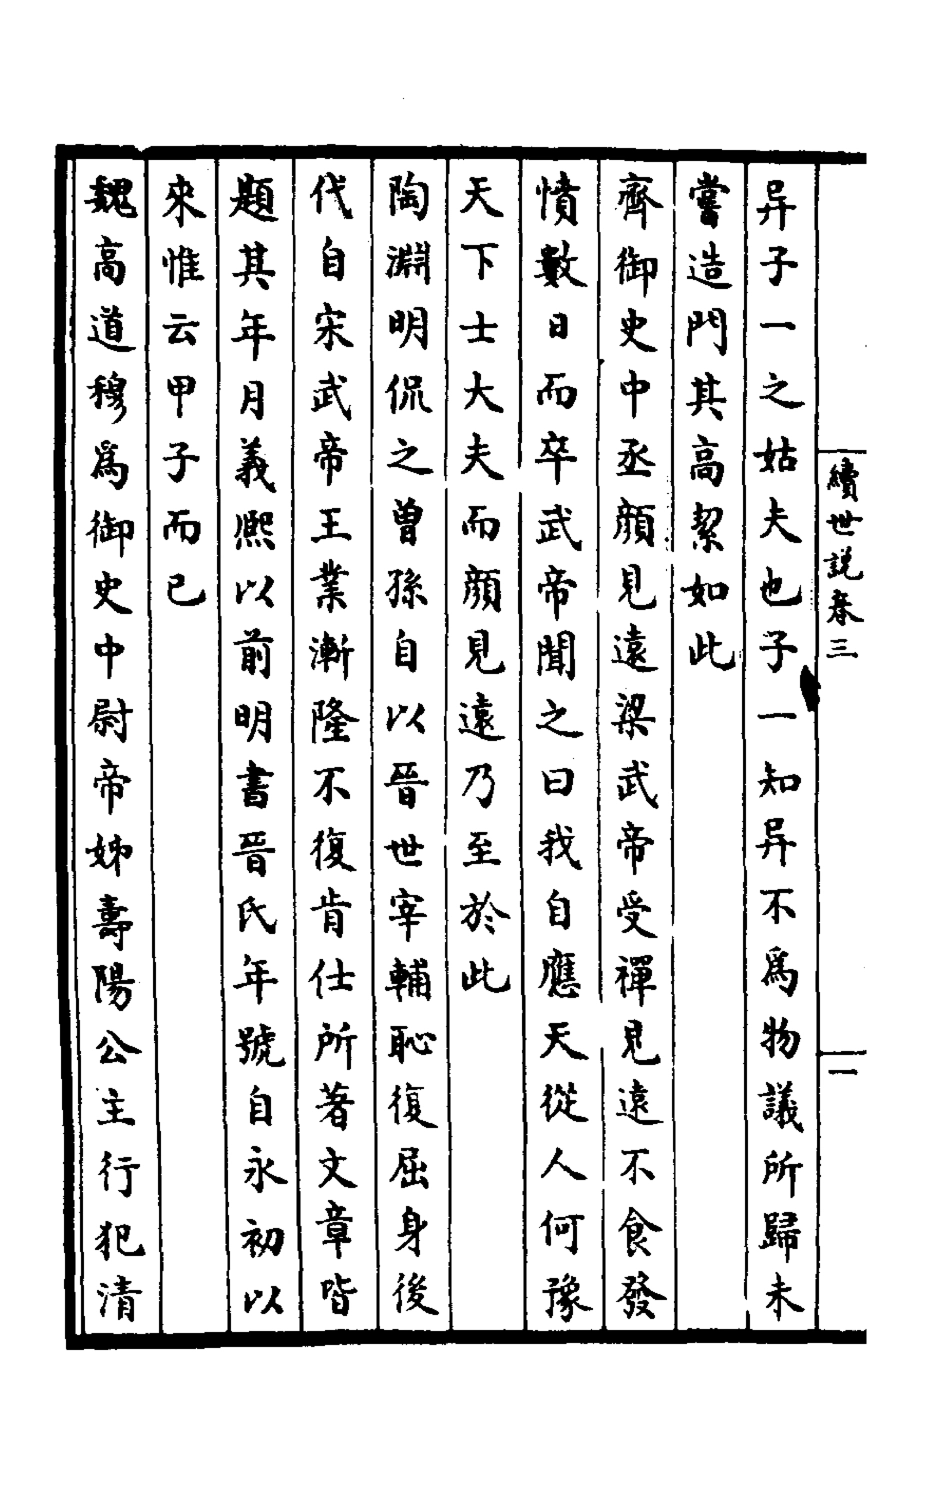 續世説卷三
一
异子一之姑夫也子一知异不爲物議所歸未
嘗造門其高潔如此
齊御史中丞顔見遠梁武帝受禪見遠不食發
憤數日而卒武帝聞之曰我自應天從人何豫
天下士大夫而顔見遠乃至於此
陶淵明侃之曾孫自以晉世宰輔恥復屈身後
代自宋武帝王業漸隆不復肯仕所著文章皆
題其年月義熙以前明書晉氏年號自永初以
來惟云甲子而已
魏高道穆爲御史中尉帝姊壽陽公主行犯清